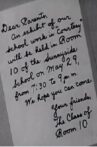 Dear Parents,
An exhibit of our
school work is
will be held in Room
10 of the Sunnyside
School on May 29,
from 7:30 to 9 p.m.
We hope you can come.
Your friends,
The Class of
Room 10